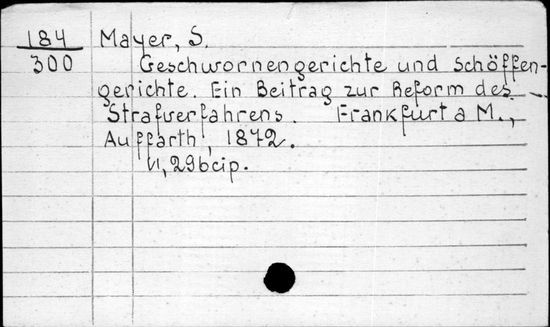 184 Mayer, S.
300 Geschwornengerichte und Schöffen-
gerichte. Ein Beitrag zur Reform des
Strafverfahrens. Frankfurt a M.,
Auffarth, 1872.
VI, 296 cip.